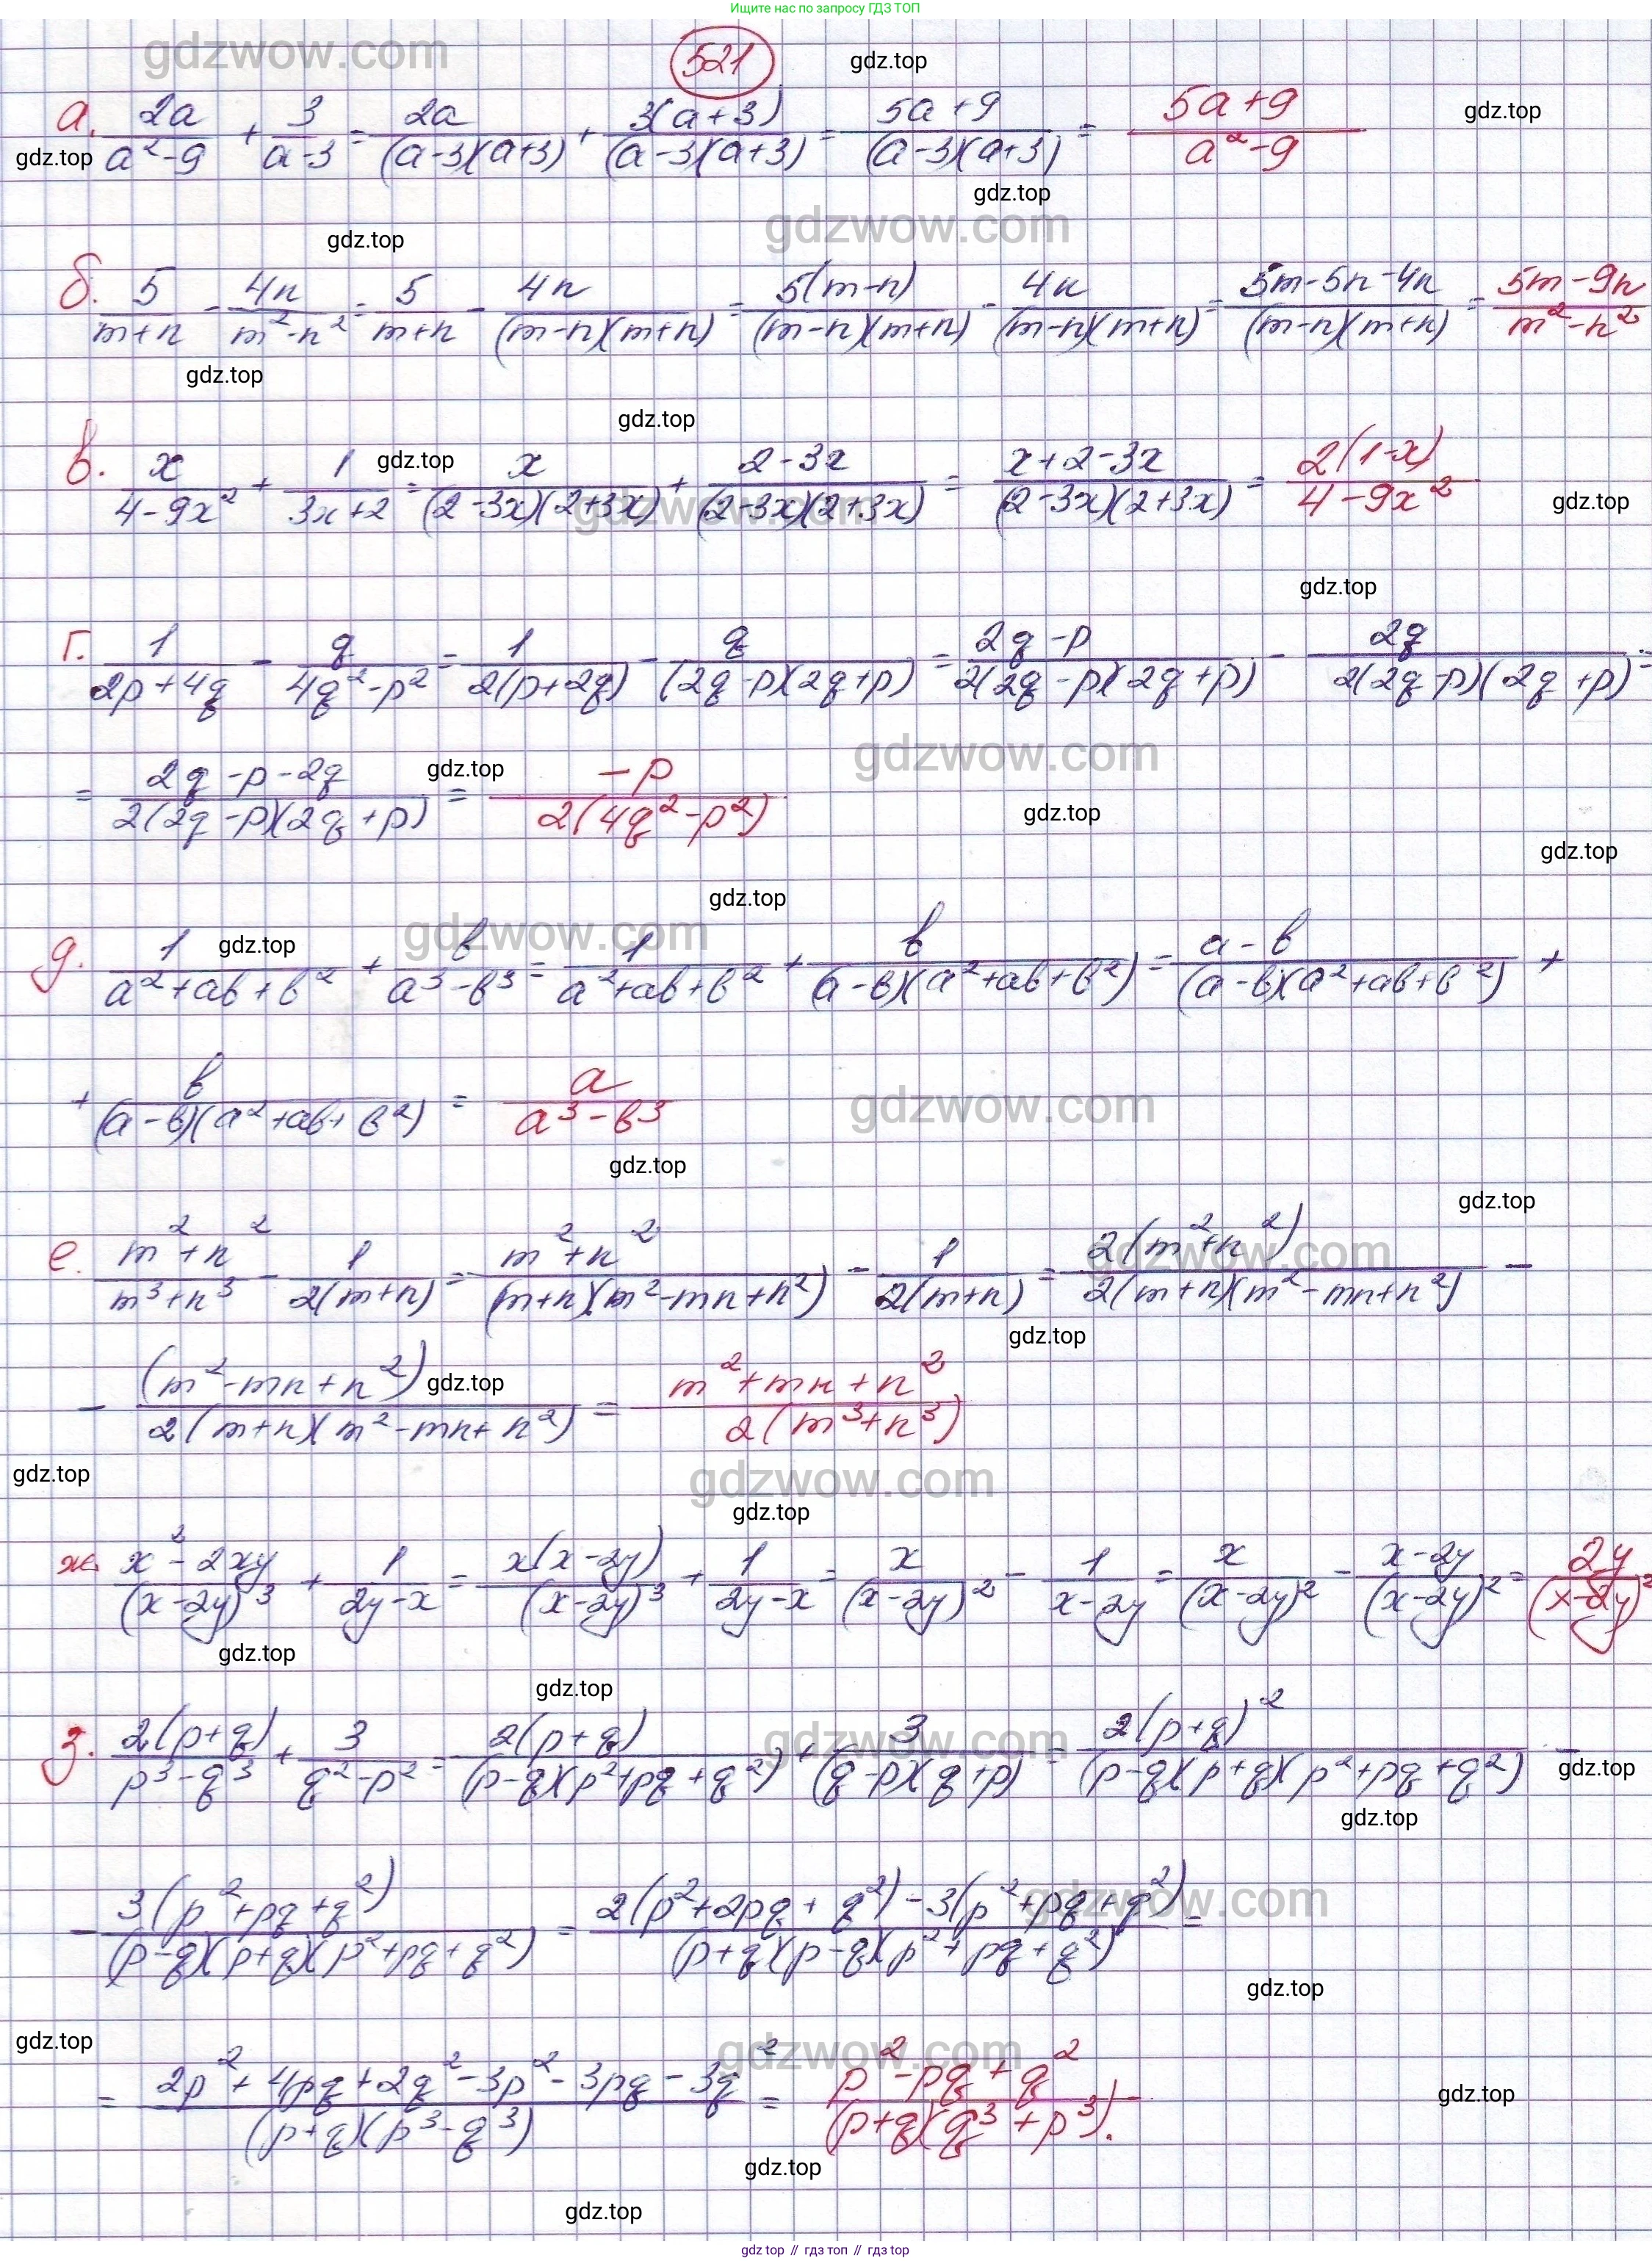 Ищите нас по запросу ГДЗ ТОП
521
а. 2a/(a²-9) + 3/(a-3) = 2a/((a-3)(a+3)) + 3(a+3)/((a-3)(a+3)) = (5a+9)/((a-3)(a+3)) = (5a+9)/(a²-9)
б. 5/(m+n) - 4n/(m²-n²) = 5/(m+n) - 4n/((m-n)(m+n)) = 5(m-n)/((m-n)(m+n)) - 4n/((m-n)(m+n)) = (5m-5n-4n)/((m-n)(m+n)) = (5m-9n)/(m²-n²)
в. x/(4-9x²) + 1/(3x+2) = x/((2-3x)(2+3x)) + (2-3x)/((2-3x)(2+3x)) = (x+2-3x)/((2-3x)(2+3x)) = 2(1-x)/(4-9x²)
г. 1/(2p+4q) - q/(4q²-p²) = 1/(2(p+2q)) - q/((2q-p)(2q+p)) = (2q-p)/(2(2q-p)(2q+p)) - 2q/(2(2q-p)(2q+p)) =
= (2q-p-2q)/(2(2q-p)(2q+p)) = -p/(2(4q²-p²))
д. 1/(a²+ab+b²) + b/(a³-b³) = 1/(a²+ab+b²) + b/((a-b)(a²+ab+b²)) = (a-b)/((a-b)(a²+ab+b²)) +
+ b/((a-b)(a²+ab+b²)) = a/(a³-b³)
е. (m²+n²)/(m³+n³) - 1/(2(m+n)) = (m²+n²)/((m+n)(m²-mn+n²)) - 1/(2(m+n)) = 2(m²+n²)/(2(m+n)(m²-mn+n²)) -
- (m²-mn+n²)/(2(m+n)(m²-mn+n²)) = (m²+mn+n²)/(2(m³+n³))
ж. (x²-2xy)/(x-2y)³ + 1/(2y-x) = x(x-2y)/(x-2y)³ + 1/(2y-x) = x/(x-2y)² - 1/(x-2y) = x/(x-2y)² - (x-2y)/(x-2y)² = 2y/(x-2y)²
з. 2(p+q)/(p³-q³) + 3/(q²-p²) = 2(p+q)/((p-q)(p²+pq+q²)) + 3/((q-p)(q+p)) = 2(p+q)²/((p-q)(p+q)(p²+pq+q²)) -
- 3(p²+pq+q²)/((p-q)(p+q)(p²+pq+q²)) = (2(p²+2pq+q²)-3(p²+pq+q²))/((p+q)(p-q)(p²+pq+q²)) =
= (2p²+4pq+2q²-3p²-3pq-3q²)/((p+q)(p³-q³)) = (p²-pq+q²)/((p+q)(q³+p³)).
gdz.top // гдз топ // гдз.top